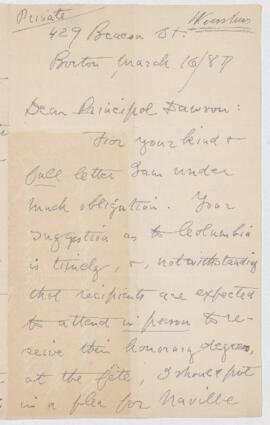 Private
Winslow
429 Beacon St.
Boston, March 16/87
Dear Principal Dawson:
For your kind &
full letter I am under
much obligation. Your
suggestion as to Columbia
is timely, &, notwithstanding
that recipients are expected
to attend in person to re-
ceive their honorary degrees,
at the fête, I should put
in a plea for Naville